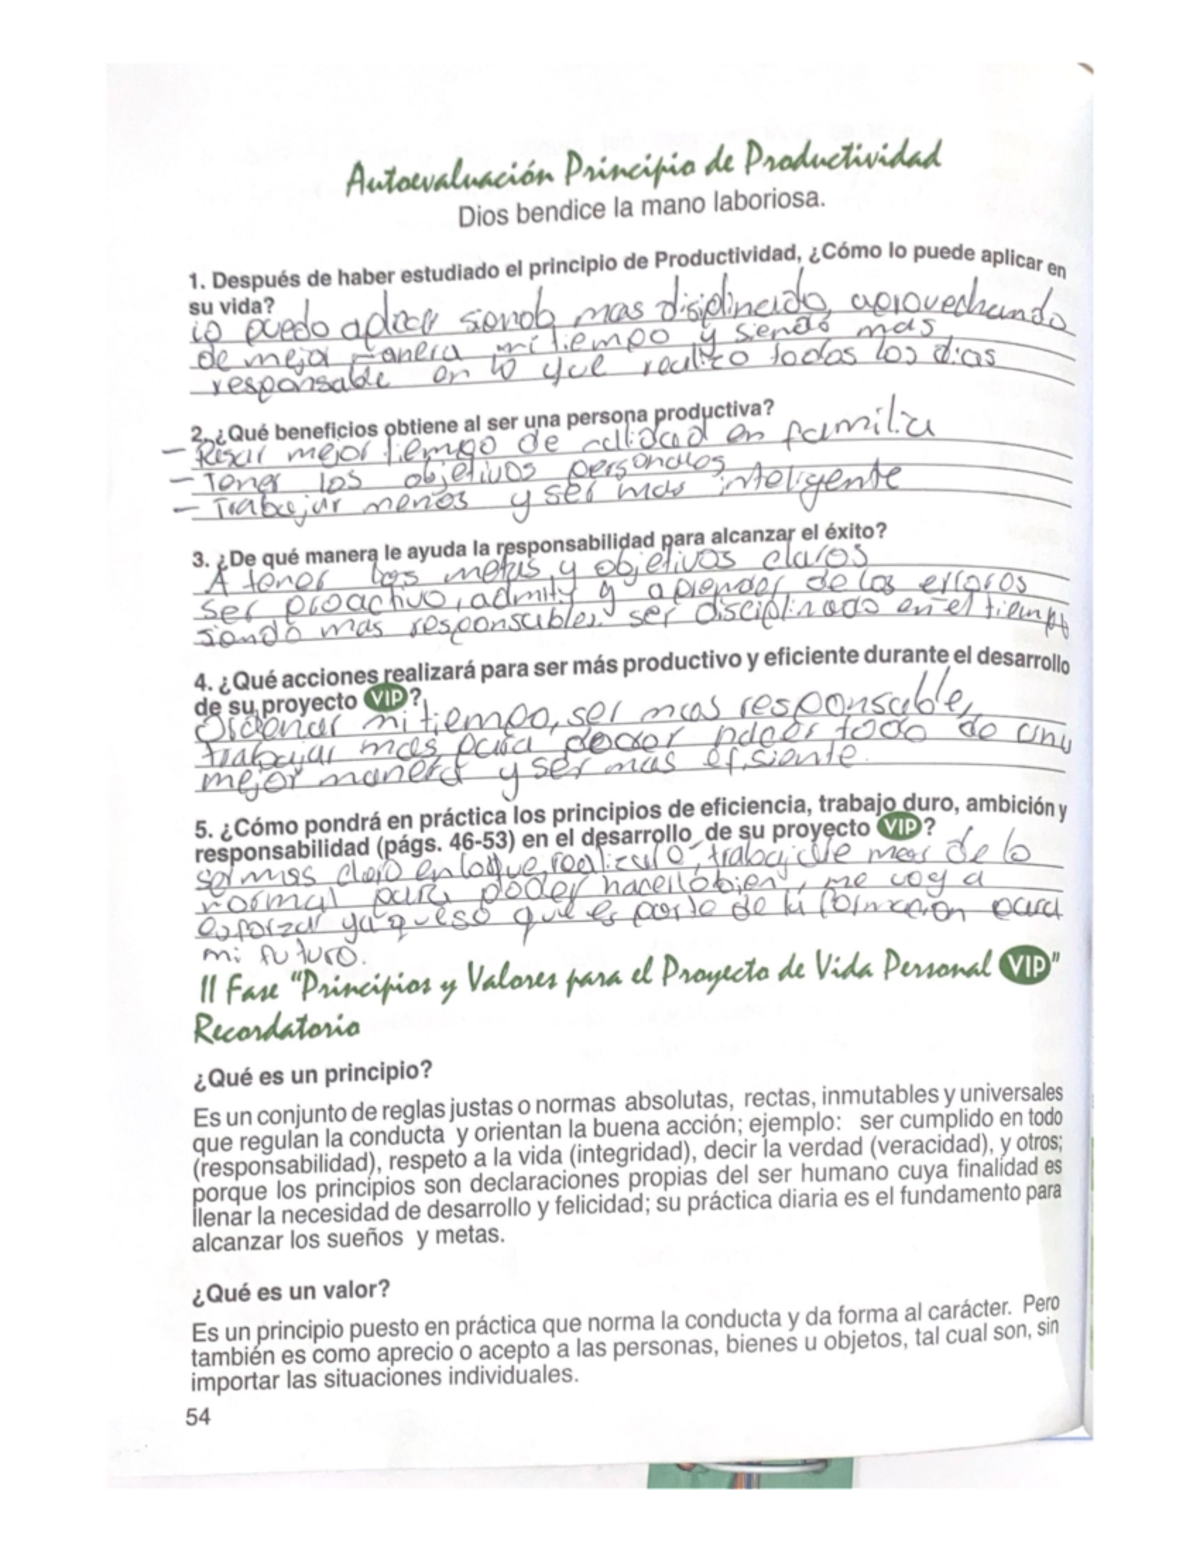 Autoevaluación Principio de Productividad
Dios bendice la mano laboriosa.
1. Después de haber estudiado el principio de Productividad, ¿Cómo lo puede aplicar en
su vida?
lo puedo aplicar siendo mas disiplinado, aprovechando
de mejor manera mi tiempo y siendo mas
responsable en lo que realizo todos los dias
2. ¿Qué beneficios obtiene al ser una persona productiva?
- mejor tiempo de calidad en familia
- Tener los objetivos personales
- Trabajar menos y ser mas inteligente
3. ¿De qué manera le ayuda la responsabilidad para alcanzar el éxito?
A tener las metas y objetivos claros
ser proactivo, admity y aprender de los errores
siendo mas responsable. ser disciplinado en el tiempo
4. ¿Qué acciones realizará para ser más productivo y eficiente durante el desarrollo
de su proyecto VIP?
Ordenar mi tiempo, ser mas responsable,
trabajar mas para poder hacer todo de una
mejor manera y ser mas efisiente.
5. ¿Cómo pondrá en práctica los principios de eficiencia, trabajo duro, ambición y
responsabilidad (págs. 46-53) en el desarrollo de su proyecto VIP?
ser mas claro en lo que realizaré, trabajaré mas de lo
normal para poder hacerlo bien, me voy a
esforzar ya que se que es parte de la formacion para
mi futuro.
II Fase "Principios y Valores para el Proyecto de Vida Personal VIP"
Recordatorio
¿Qué es un principio?
Es un conjunto de reglas justas o normas absolutas, rectas, inmutables y universales
que regulan la conducta y orientan la buena acción; ejemplo: ser cumplido en todo
(responsabilidad), respeto a la vida (integridad), decir la verdad (veracidad), y otros;
porque los principios son declaraciones propias del ser humano cuya finalidad es
llenar la necesidad de desarrollo y felicidad; su práctica diaria es el fundamento para
alcanzar los sueños y metas.
¿Qué es un valor?
Es un principio puesto en práctica que norma la conducta y da forma al carácter. Pero
también es como aprecio o acepto a las personas, bienes u objetos, tal cual son, sin
importar las situaciones individuales.
54